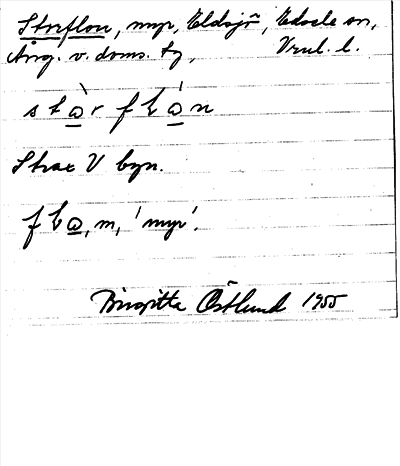 Storflon, myr, Eldsjö, Edsele sn,
Ång. v. doms. tg, Vrnl. l.
Strax V byn.
m, 'myr'.
Birgitta Östlund 1955